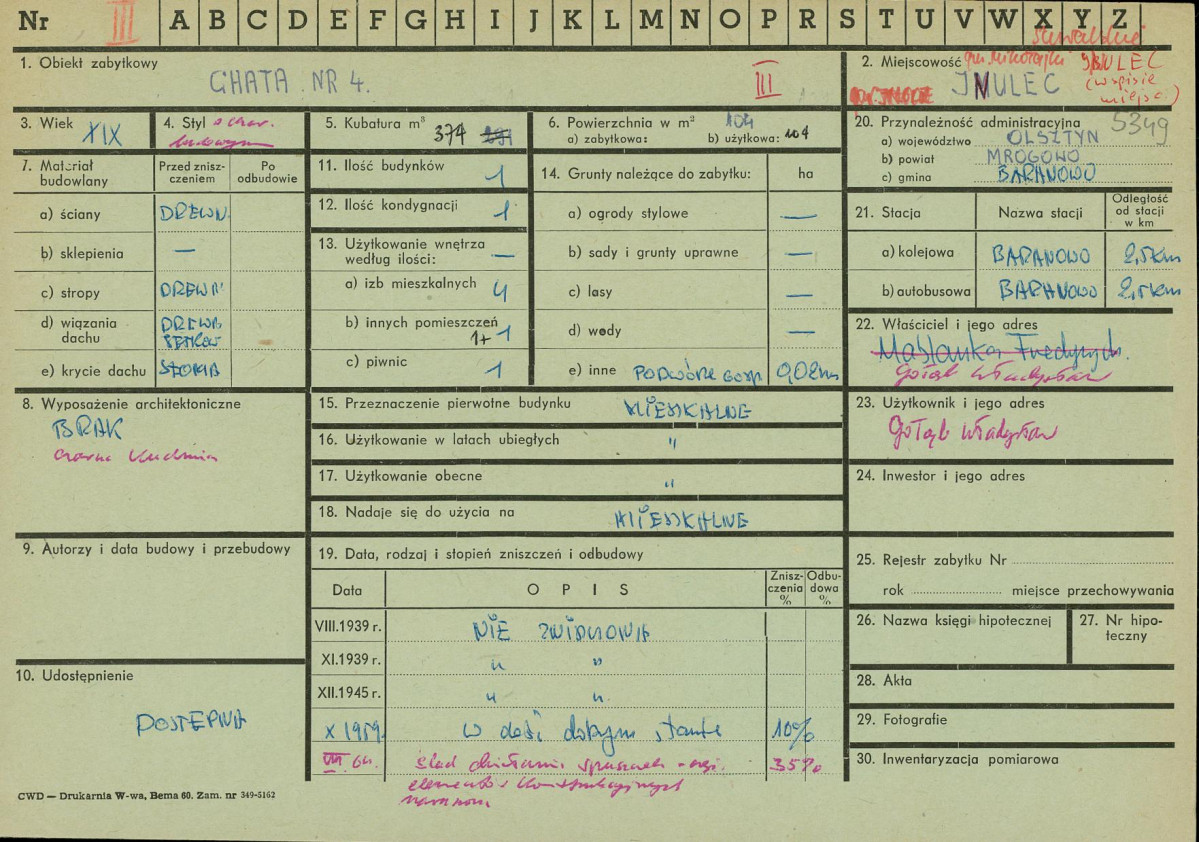 Nr III A B C D E F G H I J K L M N O P R S T U V W X Y Z
suwalskie
1. Obiekt zabytkowy
CHATA NR 4.
III
2. Miejscowość gm. Mikołajki
INULEC
(w spisie
miejsc.)
3. Wiek
XIX
4. Styl
ludowym
5. Kubatura m³
374
6. Powierzchnia w m²
104
a) zabytkowa: b) użytkowa: 104
20. Przynależność administracyjna
5349
a) województwo OLSZTYN
b) powiat MRĄGOWO
c) gmina BARANOWO
7. Materiał budowlany
Przed zniszczeniem
Po odbudowie
a) ściany DREWN.
b) sklepienia —
c) stropy DREWN
d) wiązania dachu
e) krycie dachu SŁOMA
11. Ilość budynków 1
12. Ilość kondygnacji 1
13. Użytkowanie wnętrza według ilości: —
a) izb mieszkalnych 4
b) innych pomieszczeń 1+1
c) piwnic 1
14. Grunty należące do zabytku: ha
a) ogrody stylowe —
b) sady i grunty uprawne —
c) lasy —
d) wody —
e) inne PODWÓRZE GOSP. 0,02 ha
21. Stacja
Nazwa stacji
Odległość od stacji w km
a) kolejowa BARANOWO 2,5 km
b) autobusowa BARANOWO 2,5 km
22. Właściciel i jego adres
Gołąb Władysław
8. Wyposażenie architektoniczne
BRAK
czarna kuchnia
15. Przeznaczenie pierwotne budynku MIESZKALNE
16. Użytkowanie w latach ubiegłych "
17. Użytkowanie obecne "
18. Nadaje się do użycia na MIESZKALNE
23. Użytkownik i jego adres
Gołąb Władysław
24. Inwestor i jego adres
9. Autorzy i data budowy i przebudowy
19. Data, rodzaj i stopień zniszczeń i odbudowy
Data
OPIS
Zniszczenia %
Odbudowa %
VIII.1939 r. NIE ZNISZCZONA
XI.1939 r. " "
XII.1945 r. " "
X 1959. w dość dobrym stanie 10%
VII 64. ślad działania 35%
elementów konstrukcyjnych
25. Rejestr zabytku Nr
rok miejsce przechowywania
26. Nazwa księgi hipotecznej
27. Nr hipoteczny
10. Udostępnienie
DOSTĘPNA
28. Akta
29. Fotografie
30. Inwentaryzacja pomiarowa
CWD — Drukarnia W-wa, Bema 60. Zam. nr 349-5162